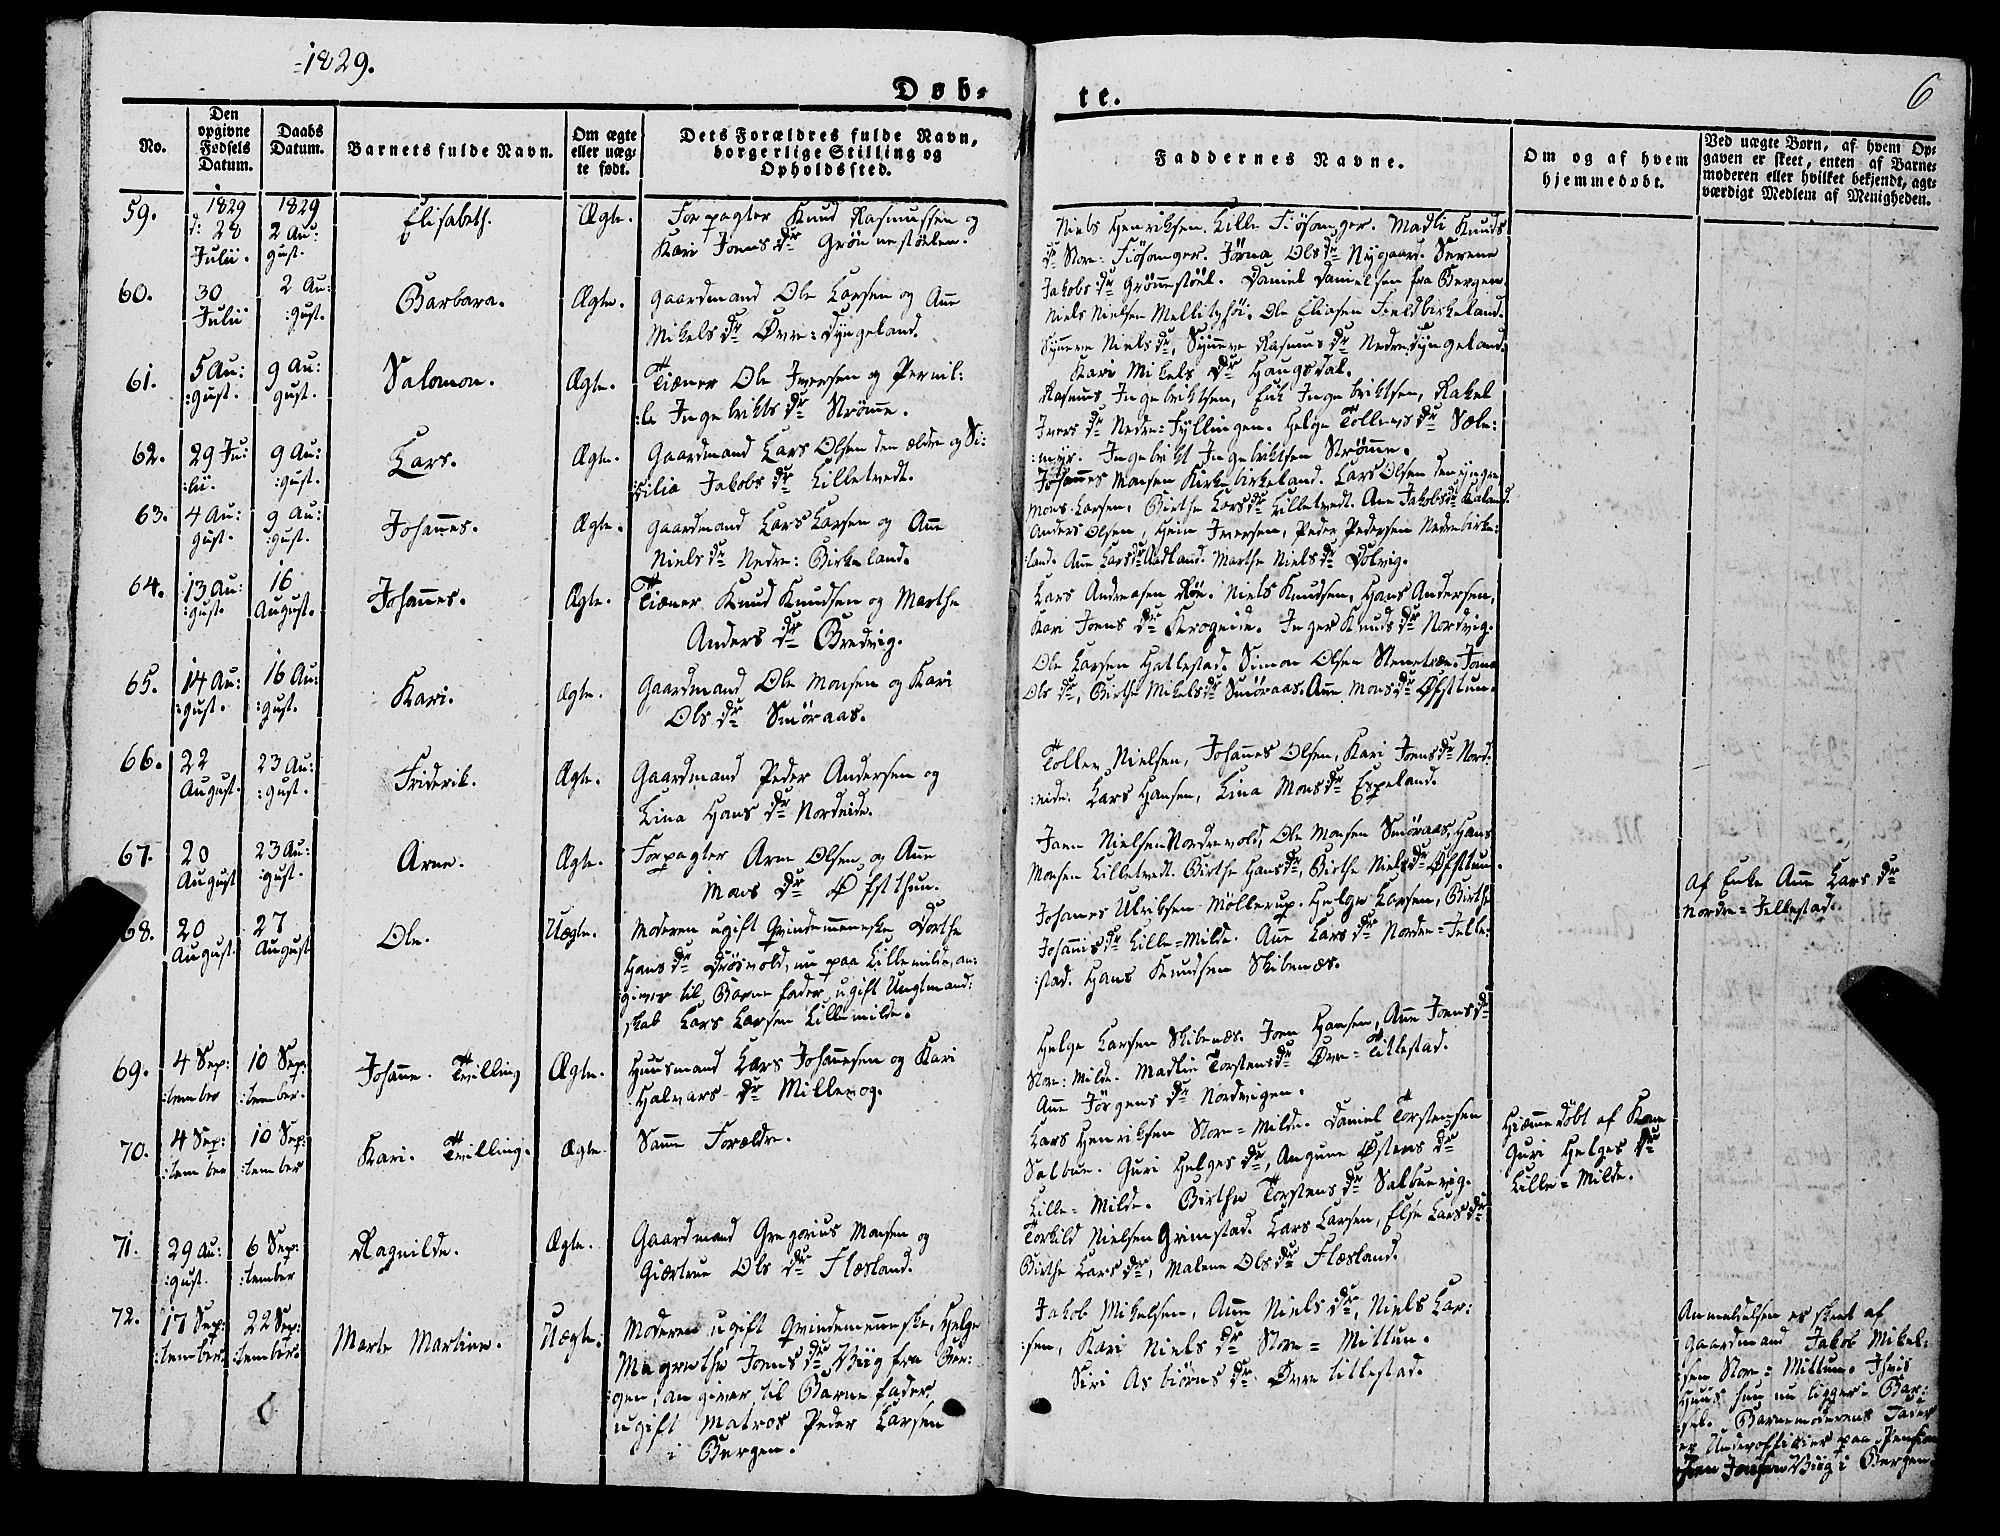 1829.
Døb=
te.
6
No.
Den opgivne Fødsels Datum.
Daabs Datum.
Barnets fulde Navn.
Om ægte eller uægte født.
Dets Forældres fulde Navn, borgerlige Stilling og Opholdssted.
Faddernes Navne.
Om og af hvem hjemmedøbt.
Ved uægte Børn, af hvem Opgaven er skeet, enten af Barnemoderen eller hvilket bekjendt, agtværdigt Medlem af Menigheden.
59.
1829
d: 28
Julii.
1829
2 Au:
gust.
Elisabeth.
Ægte.
Forpagter Knud Rasmussen og
Kari Joens dr Grønnestølen.
Niels Henriksen Lille Fiøsanger. Madli Knuds
dr Store-Fiøsanger. Jørna Ols dr Nygaard. Serene
Jakobs dr Grønnestøel. Daniel Danielsen fra Bergen.
60.
30
Julii
2 Au:
:gust.
Barbara.
Ægte.
Gaardmand Ole Larsen og Ane
Mikels dr Øvre=Dyngeland.
Niels Nielsen Mellityhøi. Ole Eliasen Fieldbirkeland.
Synneve Niels dr, Synneve Rasmus dr Nedre Dyngeland.
Kari Mikels dr Haugsdal.
61.
5 Au:
:gust.
9 Au:
gust.
Salomon.
Ægte.
Tiæner Ole Iversen og Pernil:
:le Ingebrikts dr Strømme.
Rasmus Ingebriktsen, Erik Ingebriktsen, Rakel
Ivers dr Nedre=Fyllingen. Helge Tollevs dr Sæle:
:myr. Ingebrikt Ingebriktsen Strømme.
62.
29 Ju:
:lii.
9 Au:
:gust.
Lars.
Ægte.
Gaardmand Lars Olsen den ældre og Si:
:silia Jakobs dr Lilletvedt.
Johannes Monsen Kirkebirkeland. Lars Olsen den yngre
Mons Larsen, Birthe Lars dr Lilletvedt. Ane Jakobs dr Kaland.
63.
4 Au:
gust.
9 Au:
:gust.
Johannes.
Ægte.
Gaardmand Lars Larsen og Ane
Niels dr Nedre=Birkeland.
Anders Olsen, Heine Iversen, Peder Pedersen Nedrebirke:
:land. Ane Lars dr Aadland. Marthe Niels dr Dolvig.
64.
13 Au:
:gust.
16
August.
Johannes.
Ægte.
Tiæner Knud Knudsen og Marthe
Anders dr Bredvig.
Lars Andreasen Røe. Niels Knudsen, Hans Andersen,
Kari Joens dr Krogeide. Inger Knuds dr Nordvig.
65.
14 Au:
:gust.
16 Au:
:gust.
Kari.
Ægte.
Gaardmand Ole Monsen og Kari
Ols dr Smøraas.
Ole Larsen Hatlestad. Simon Olsen Stenetræ. Jona
Ols dr, Birthe Mikels dr Smøraas. Ane Mons dr Øfsttun.
66.
22
August.
23 Au:
:gust.
Friderik.
Ægte.
Gaardmand Peder Andersen og
Lina Hans dr Nordeide.
Tollev Nielsen, Johannes Olsen, Kari Joens dr Nord:
:eide. Lars Hansen, Lina Mons dr Espeland.
67.
20
August
23 Au:
:gust.
Arne.
Ægte.
Forpagter Arne Olsen og Ane
Mons dr Øfstthun.
Joen Nielsen Nordrevold, Ole Monsen Smøraas, Hans
Monsen Lilletvedt. Birthe Hans dr, Birthe Niels dr Øfsttun.
68.
20
August.
27
August
Ole.
Uægte.
Moderen ugift Qvindemenneske Dorthe
Hans dr Drøsvold, nu paa Lillemilde, an:
:giver til Barnefader ugift Ungtmand:
:skab Lars Larsen Lillemilde.
Johannes Ulriksen Møllerup. Helge Larsen, Birthe
Johannis dr Lille=Milde. Ane Lars dr Nordre=Jelle:
:stad. Hans Knudsen Skibenæs.
Af Enke Ane Lars dr
Nordre=Jellestad.
69.
4 Sep:
:tember
10 Sep:
:tember.
Johanne. Tvilling
Ægte.
Huusmand Lars Johannesen og Kari
Halvars dr Millevog.
Helge Larsen Skibenæs. Joen Hansen, Ane Joens dr
Store=Milde. Madlie Torstens dr Øvre=Titlestad.
Ane Jørgens dr Nordvigen.
70.
4 Sep:
:tember
10 Sep:
:tember
Kari. Tvilling.
Ægte.
Samme Forældre.
Lars Henriksen Store=Milde. Daniel Torstensen
Salbue. Guri Helges dr, Angune Østens dr
Lille=Milde. Birthe Torstens dr Salbuevig.
Hiæmmedøbt af Kone
Guri Helges dr
Lille=Milde.
71.
29 Au:
:gust.
6 Sep:
:tember
Ragnilde.
Ægte.
Gaardmand Gregorius Monsen og
Giærtrue Ols dr Flæsland.
Torkild Nielsen Grimstad. Lars Larsen, Else Lars dr
Birthe Lars dr, Malene Ols dr Flæsland.
72.
17 Sep:
:tember
22 Sep:
:tember.
Marte Martine.
Uægte.
Moderen ugift Qvindemenneske, Helge
Magrethe Joens dr Viig fra Ber:
:gen, angiver til Barnefader,
ugift Matros Peder Larsen
i Bergen.
Jakob Mikelsen, Ane Niels dr, Niels Lar:
:sen, Kari Niels dr Store=Mittun.
Siri Asbiørns dr Øvre Titlestad.
Anmeldelsen er skeet af
Gaardmand Jakob Mikel:
:sen Store=Mittun. I hvis
Huus hun nu ligger i Bar:
:sel. Barnemoderens Fader
er Underofficier paa Pension
Joen Viig i Bergen.